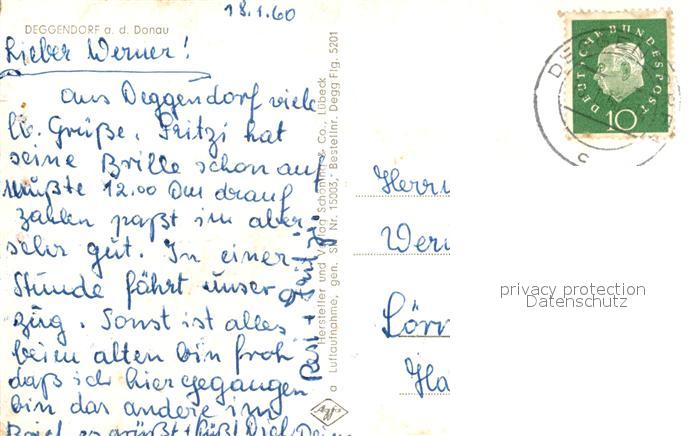 18.1.60
DEGGENDORF a. d. Donau
Lieber Werner!
aus Deggendorf viele
lb. Grüße. Fritzi hat
seine Brille schon auf
mußte 12.00 DM drauf
zahlen paßt im aber
sehr gut. In einer
Stunde fährt unser
Zug. Sonst ist alles
beim alten bin froh
daß ich hier gegangen
bin das andere im
Brief es grüßt + küßt Dich Deine
Resi + Fritzi
Hersteller und Verlag Schöning & Co., Lübeck
a Luftaufnahme, gen. Nr. 15003, Bestellnr. Degg Flg. 5201
Agfa
DEUTSCHE BUNDESPOST
10
Herrn
Wern
Lörr
Ha
privacy protection
Datenschutz